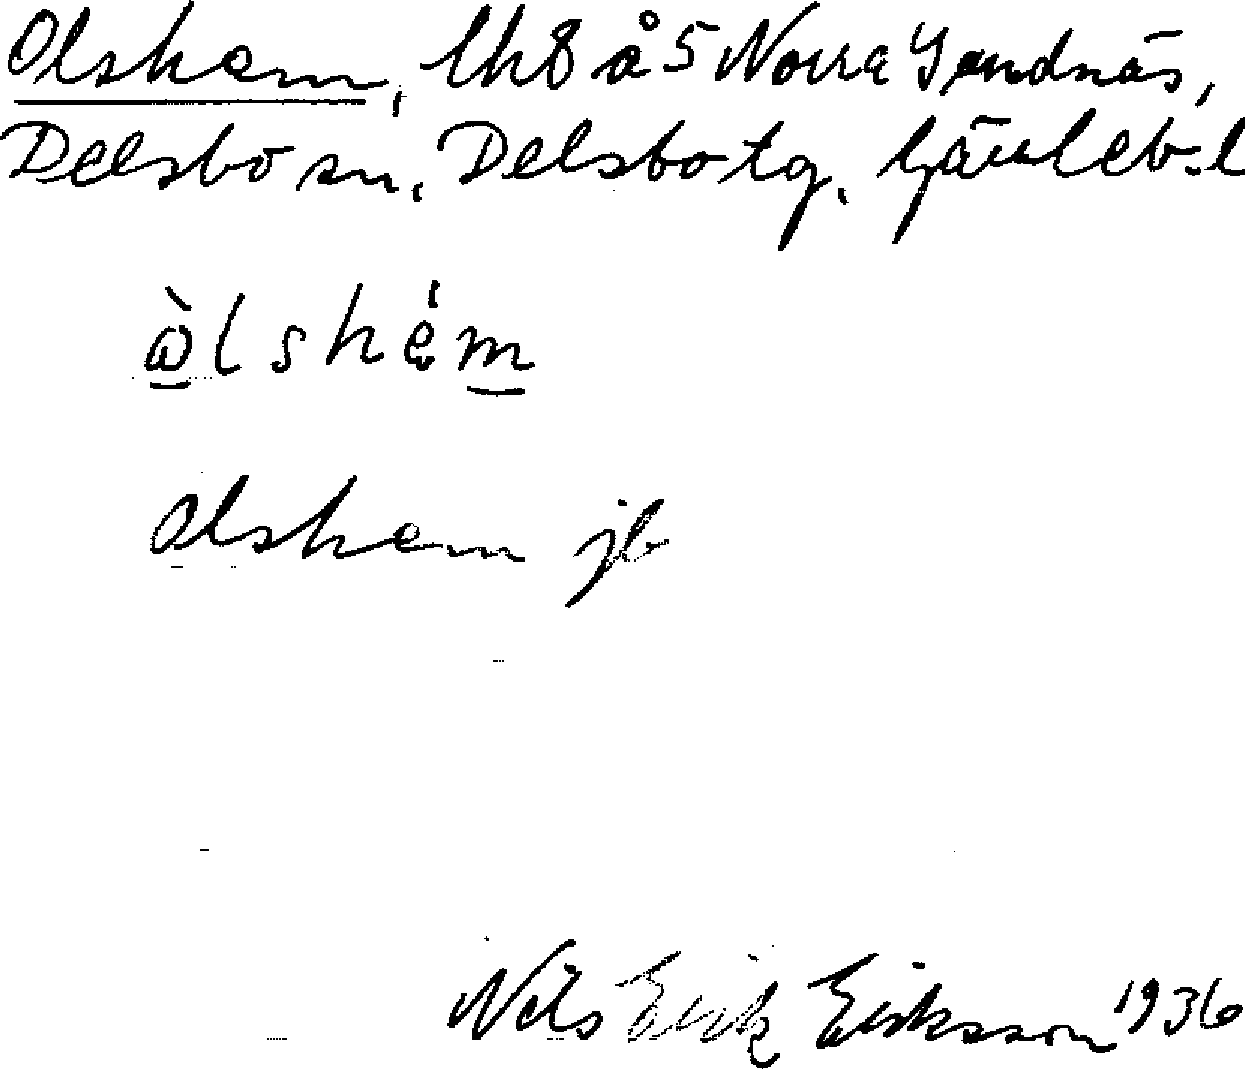 Olshem, lh 8 å 5 Norra Sandnäs,
Delsbo sn, Delsbo tg, Gävleb. l
òlshém
Olshem jb
Nils Erik Eriksson 1936